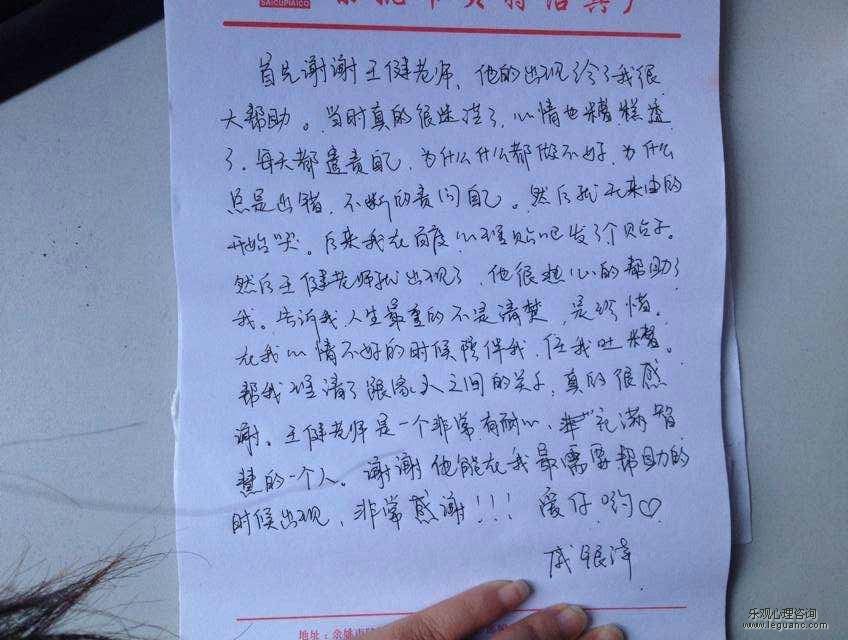 SAICUPIAICO
首先谢谢王健老师，他的出现给了我很
大帮助。当时真的很迷茫了，心情也糟糕透
了，每天都遣责自己，为什么什么都做不好，为什么
总是出错，不断的责问自己。然后就无来由的
开始哭。后来我在百度心理贴吧发了个贴子。
然后王健老师就出现了，他很热心的帮助了
我。告诉我，人生最重的不是清楚，是珍惜。
在我心情不好的时候陪伴我，任我吐糟。
帮我理清了跟家人之间的关系，真的很感
谢。王健老师是一个非常有耐心，充满智
慧的一个人。谢谢他能在我最需要帮助的
时候出现，非常感谢！！！爱你哟♡
戚银萍
地址：余姚市
乐观心理咨询
www.leguanc.com